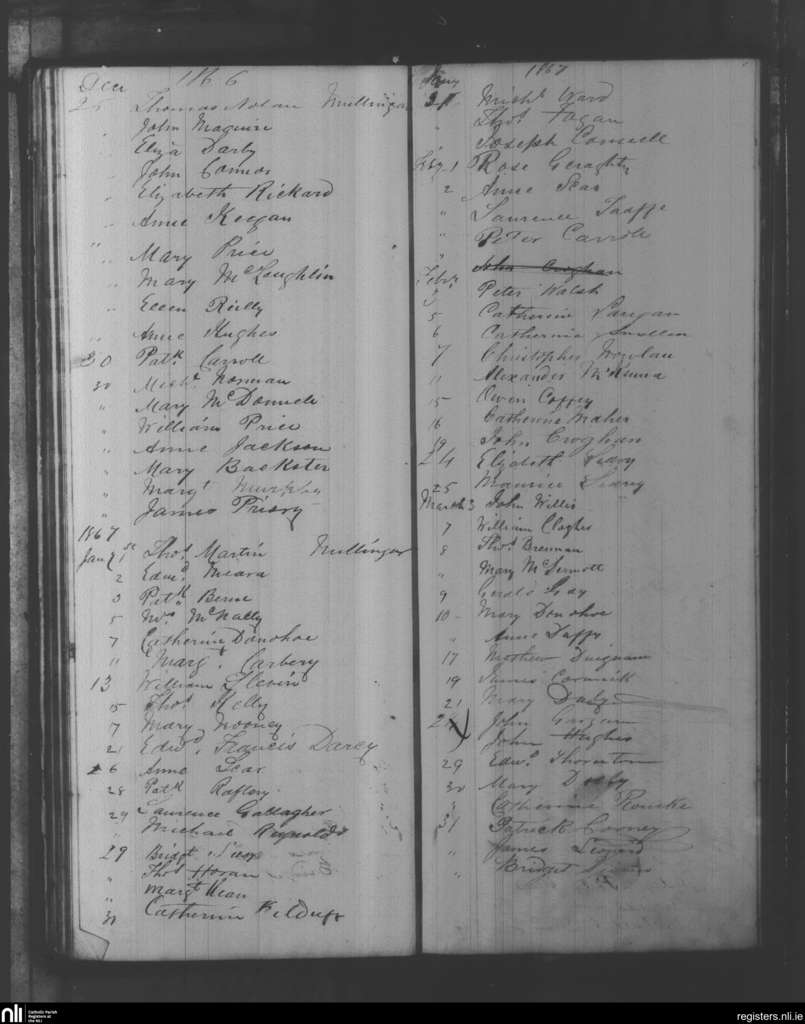 Decr 1866
25 Thomas Nolan Mullingar
" John Maguire
" Eliza Darby
" John Connor
" Elizabeth Rickard
" Anne Keegan
" Mary Price
" Mary McLoughlin
" Ellen Reilly
" Anne Hughes
30 Patk Carroll
30 Michl Noonan
" Mary McDonnell
" William Price
" Anne Jackson
" Mary Backster
" Margt Murphy
" James Priory
1867
Jany 1st Thos Martin Mullingar
2 Edwd Meara
3 Patk Berne
5 McNally
7 Catherine Donohoe
11 Margt Carbery
13 William Slevin
15 Thos Kelly
7 Mary Mooney
21 Edwd Francis Darcy
26 Anne Lear
28 Patk Raftery
29 Laurence Gallagher
" Michael Reynolds
29 Bridgt
" Thos Horan
" Margt Kean
31 Catherine Kilduff
Jany 1867
31 Michl Ward
" Thos Fagan
" Joseph Connell
Feby 1 Rose Geraghty
2 Anne
" Laurence Taaffe
" Peter Carroll
" John Croghan
Feby 3 Peter Walsh
5 Catherine
6 Catherine Smollen
7 Christopher Nowlan
11 Alexander McKenna
15 Owen Coffey
16 Catherine Maher
19 John Croghan
24 Elizabeth Leary
25 Maurice Leary
March 3 John Willis
7 William Cloghes
8 Thos Brennan
" Mary McDermott
9 Gerald Gay
10 Mary Donohoe
" Anne Duffy
17 Mathew Duignam
19 James Cormick
21 Mary
John
John Hughes
29 Edwd Thornton
30 Mary
Catherine Rourke
31 Patrick Cooney
" James
" Bridget
nli Catholic Parish Registers at the NLI
registers.nli.ie